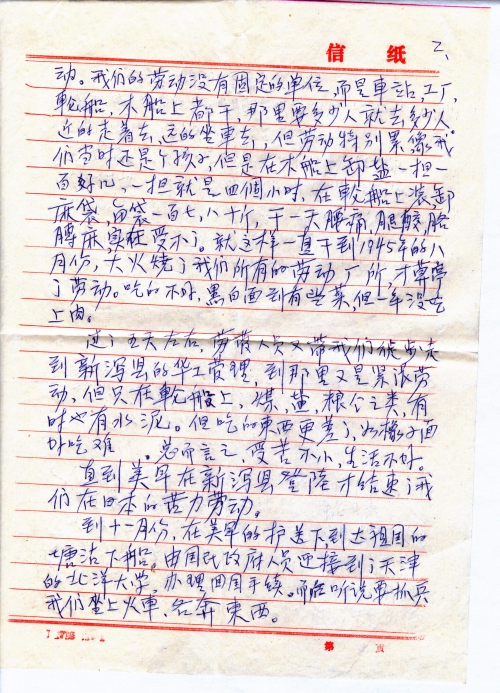 信 纸 2、
动。我们的劳动没有固定的单位,而是車站,工厂,
轮船,木船上都干,那里要多少人就去多少人。
近的走着去,远的坐車去,但劳动特别累像我
们当时还是个孩子,但是在木船上卸盐一担一
百好几,一担就是四個小时,在轮船上装卸
麻袋,每袋一百七、八十斤,干一天腰痛,腿酸胳
膊麻实在受不了。就这样一直干到1945年的八
月份,大火烧了我们所有的劳动厂所,才算停
了劳动。吃的不好,黑白面到有些菜,但一年没吃
上肉。
过了五天左右,劳管人员又带我们徒步走
到新泻县的华工管理,到那里又是紧张劳
动,但只在轮船上,煤,盐,粮食之类,有
时也有水泥。但吃的東西更差了,如橡子面
好吃难 。总而言之,受苦不小,生活不好。
直到美军在新泻县登陸才结束了我
们在日本的苦力劳动。
到十一月份,在美军的护送下到达祖国的
塘沽下船。由国民政府人员迎接到了天津
的北洋大学,办理回国手续。而临听说要抓兵
我们坐上火車、各奔東西。
第 页